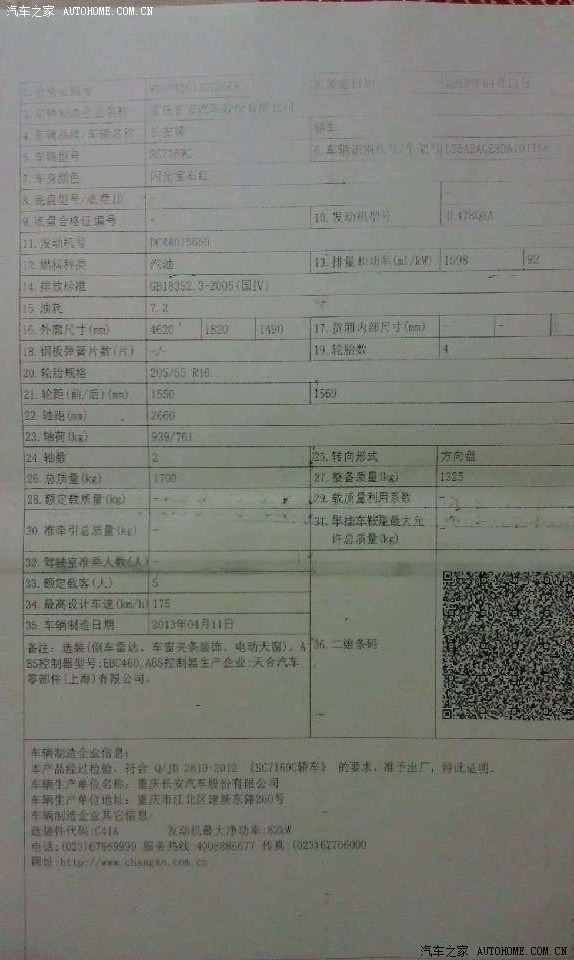 汽车之家 AUTOHOME.COM.CN
1.合格证编号 2.发证日期 2013年04月11日
3.车辆制造企业名称 重庆长安汽车股份有限公司
4.车辆品牌/车辆名称 长安牌 轿车
5.车辆型号 SC7169C 6.车辆识别代号/车架号
7.车身颜色 闪光宝石红
8.底盘型号/底盘ID -
9.底盘合格证编号 - 10.发动机型号 JL478QEA
11.发动机号
12.燃料种类 汽油 13.排量和功率(ml/kW) 1598 92
14.排放标准 GB18352.3-2005(国Ⅳ)
15.油耗 7.2
16.外廓尺寸(mm) 4620 1820 1490 17.货厢内部尺寸(mm) - -
18.钢板弹簧片数(片) -/- 19.轮胎数 4
20.轮胎规格 205/55 R16
21.轮距(前/后)(mm) 1550 1569
22.轴距(mm) 2660
23.轴荷(kg) 939/761
24.轴数 2 25.转向形式 方向盘
26.总质量(kg) 1700 27.整备质量(kg) 1325
28.额定载质量(kg) - 29.载质量利用系数 -
30.准牵引总质量(kg) - 31.半挂车鞍座最大允
许总质量(kg) -
32.驾驶室准乘人数(人) -
33.额定载客(人) 5
34.最高设计车速(km/h) 175
35.车辆制造日期 2013年04月11日
36.二维条码
备注：选装(倒车雷达、车窗夹条装饰、电动天窗)。A
BS控制器型号:EBC460,ABS控制器生产企业:天合汽车
零部件(上海)有限公司。
车辆制造企业信息:
本产品经过检验，符合 Q/JD 2819-2012 《SC7169C轿车》 的要求，准予出厂，特此证明。
车辆生产单位名称: 重庆长安汽车股份有限公司
车辆生产单位地址: 重庆市江北区建新东路260号
车辆制造企业其它信息:
选装件代码:C41A 发动机最大净功率:82kW
电话:(023)67889999 服务热线:4008886677 传真:(023)67766000
网址:http://www.changan.com.cn
汽车之家 AUTOHOME.COM.CN